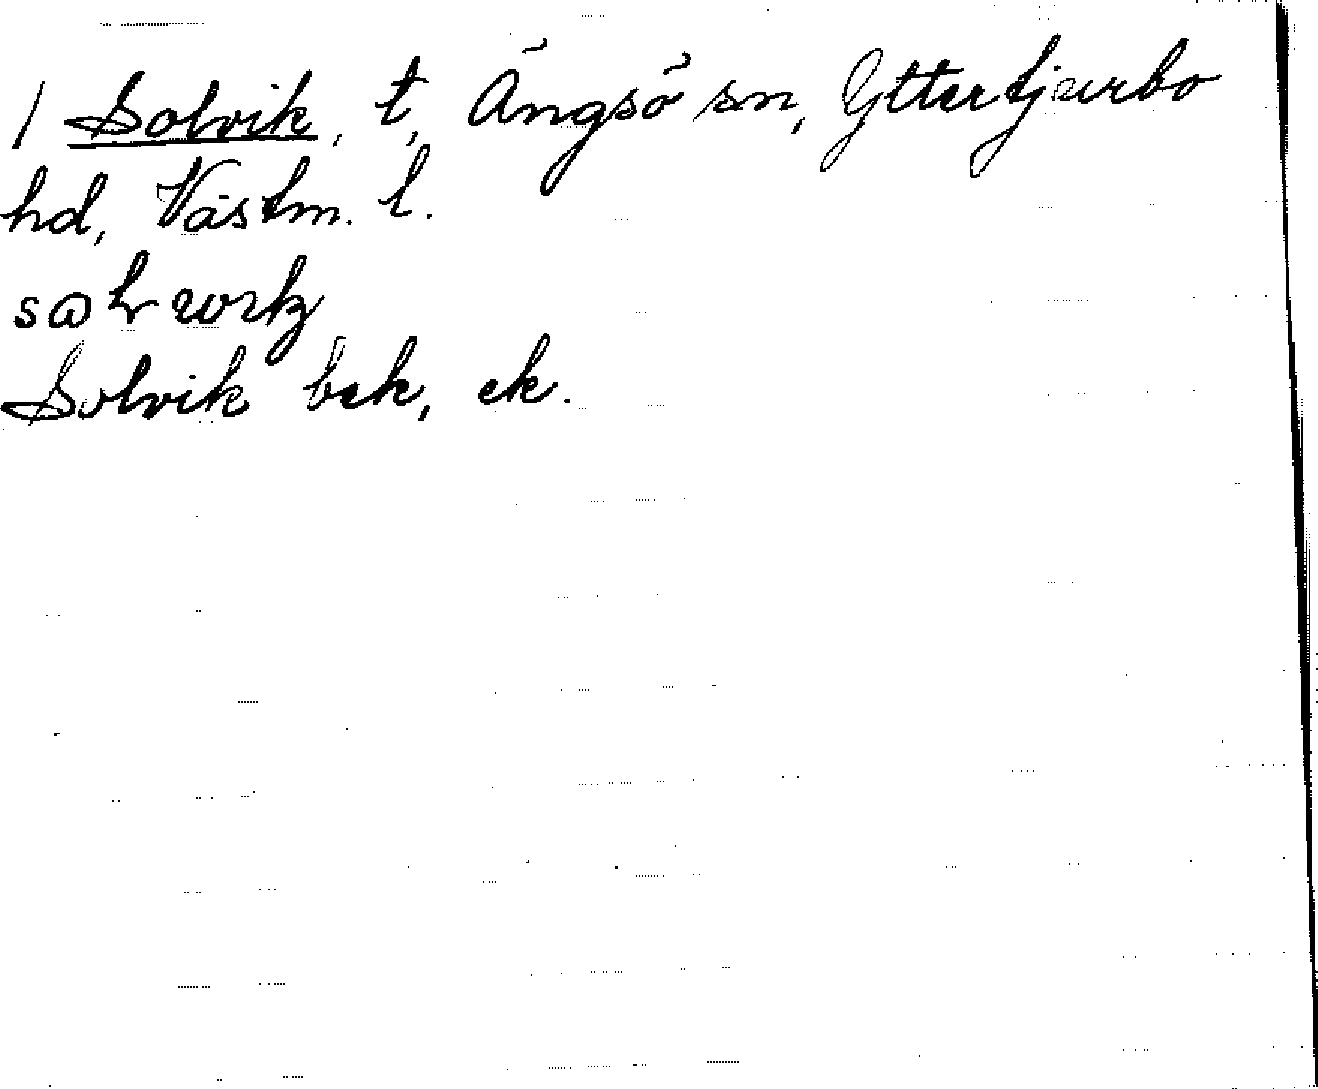 / Solvik, t, Ängsö sn, Yttertjurbo
hd, Västm. l.
Solvik bek, ek.